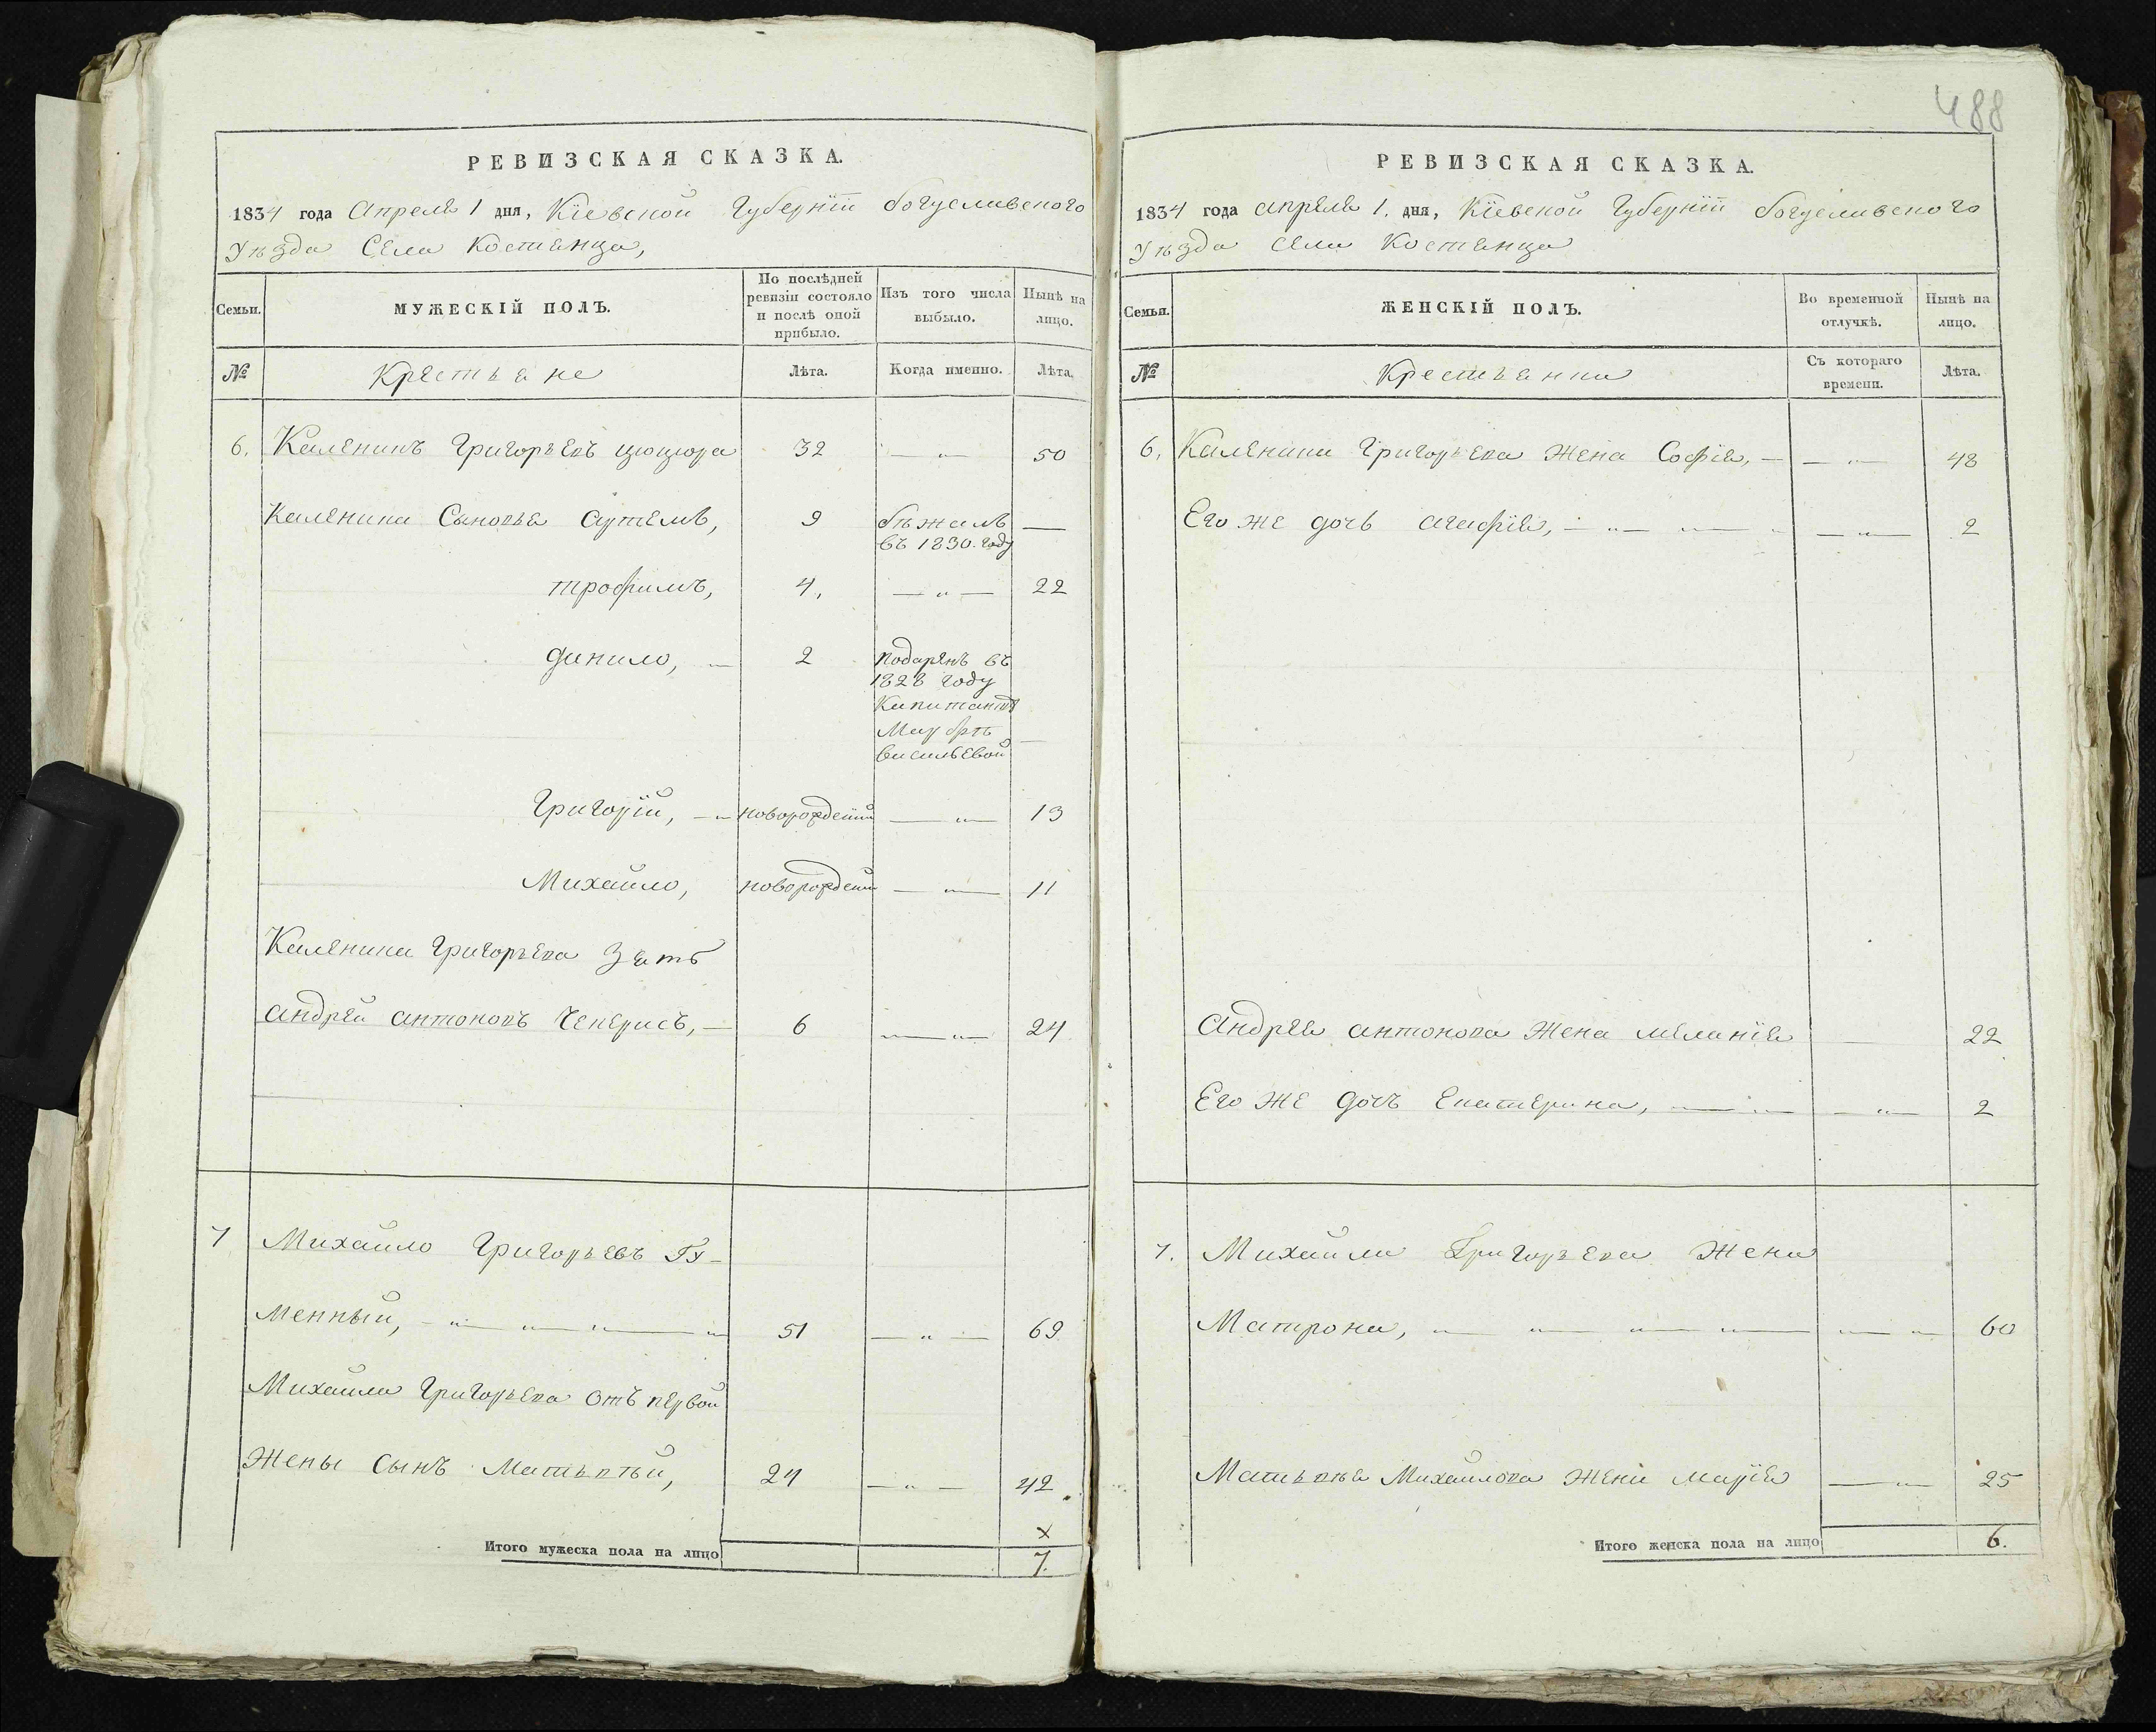 488
РЕВИЗСКАЯ СКАЗКА.
1834 года Апреля 1 дня, Кіевской Губерніи богуславского
Уѣзда Села Костянца,
Семьи.
МУЖЕСКІЙ ПОЛЪ.
По послѣдней
ревизіи состояло
и послѣ оной
прибыло.
Изъ того числа
выбыло.
Нынѣ на
лицо.
№
Крестьяне
Лѣта.
Когда именно.
Лѣта.
6. Каленикъ Григорьевъ цюцюра 32 — „ — 50
Каленика Сыновья Артемъ, 9 бѣжалъ —
въ 1830. году
трофимъ, 4, — „ — 22
данило, — 2 подаренъ въ
1828 году
Капитаншѣ
Марфѣ —
васильевой
Григорій, — новорожденій — „ — 13
Михайло, новорожденій — „ — 11
Каленика Григорьева Зять
андрей антоновъ Чекерисъ, — 6 — „ — 24
7 Михайло Григорьевъ Гу-
менный, — „ — „ — „ — „ 51 — „ — 69
Михайла Григорьева отъ первой
Жены сынъ Матьвѣй, 24 — „ — 42.
х
Итого мужеска пола на лицо 7.
РЕВИЗСКАЯ СКАЗКА.
1834 года апреля 1. дня, Кіевской Губерніи богуславского
Уѣзда села Костянца
Семьи.
ЖЕНСКІЙ ПОЛЪ.
Во временной
отлучкѣ.
Нынѣ на
лицо.
№
Крестьянки
Съ котораго
времени.
Лѣта.
6. Каленика Григорьева Жена Софія, — — „ — 48
Его же дочь агафія, — „ — „ — „ — „ — 2
Андрея антонова Жена меланія — 22
Его же дочъ Екатерина, — „ — — „ — 2
7. Михайла Григорьева Жена
Матрона, — „ — „ — „ — „ — — „ — 60
Матьвея Михайлова жена марія — „ — 25
Итого женска пола на лицо 6.